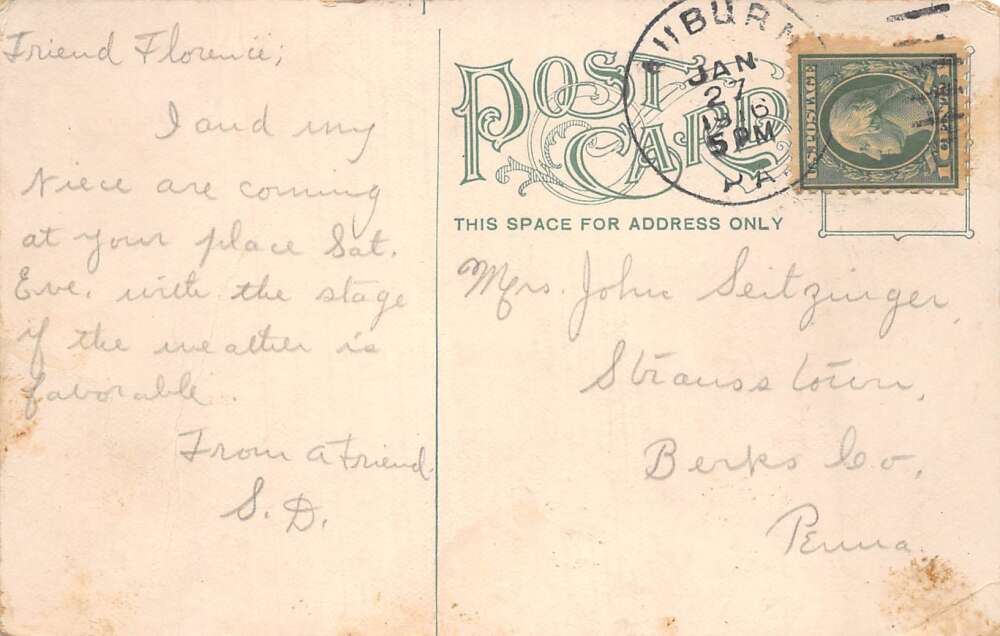 Friend Florence,
I and my
Niece are coming
at your place Sat.
Eve. with the stage
if the weather is
favorable.
From a Friend.
S. D.
POST CARD
THIS SPACE FOR ADDRESS ONLY
AUBURN
JAN
27
1916
5 PM
PA.
U.S. POSTAGE
1 CENT 1
Mrs. John Seitzinger,
Strausstown,
Berks Co.
Penna.